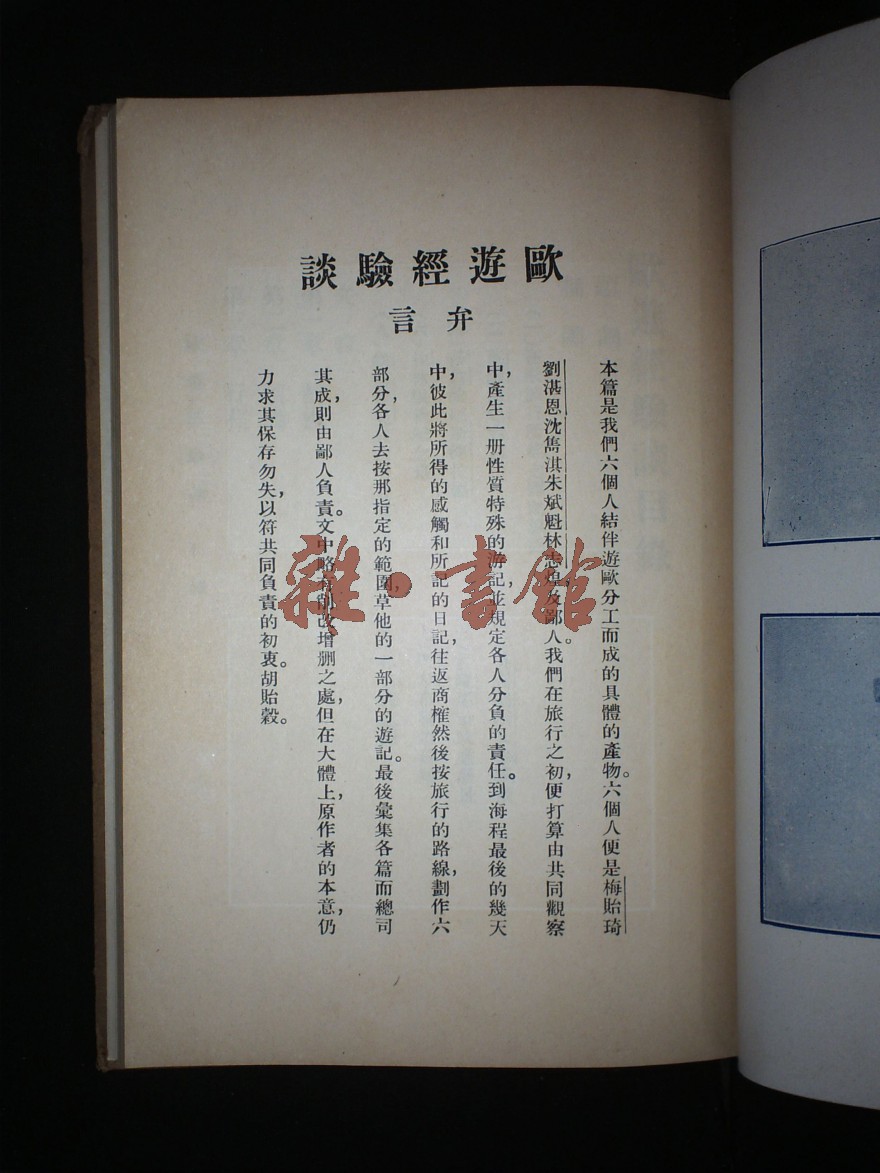 歐遊經驗談
弁言
本篇是我們六個人結伴遊歐分工而成的具體的產物。六個人便是梅貽琦
劉湛恩沈雋淇朱斌魁林志煌及鄙人。我們在旅行之初,便打算由共同觀察
中,產生一册性質特殊的游記,並規定各人分負的責任。到海程最後的幾天
中,彼此將所得的感觸和所記的日記,往返商榷然後按旅行的路線,劃作六
部分,各人去按那指定的範圍,草他的一部分的遊記。最後彙集各篇而總司
其成,則由鄙人負責。文中略有削改增删之處,但在大體上,原作者的本意,仍
力求其保存勿失,以符共同負責的初衷。胡貽穀。
雜·書館